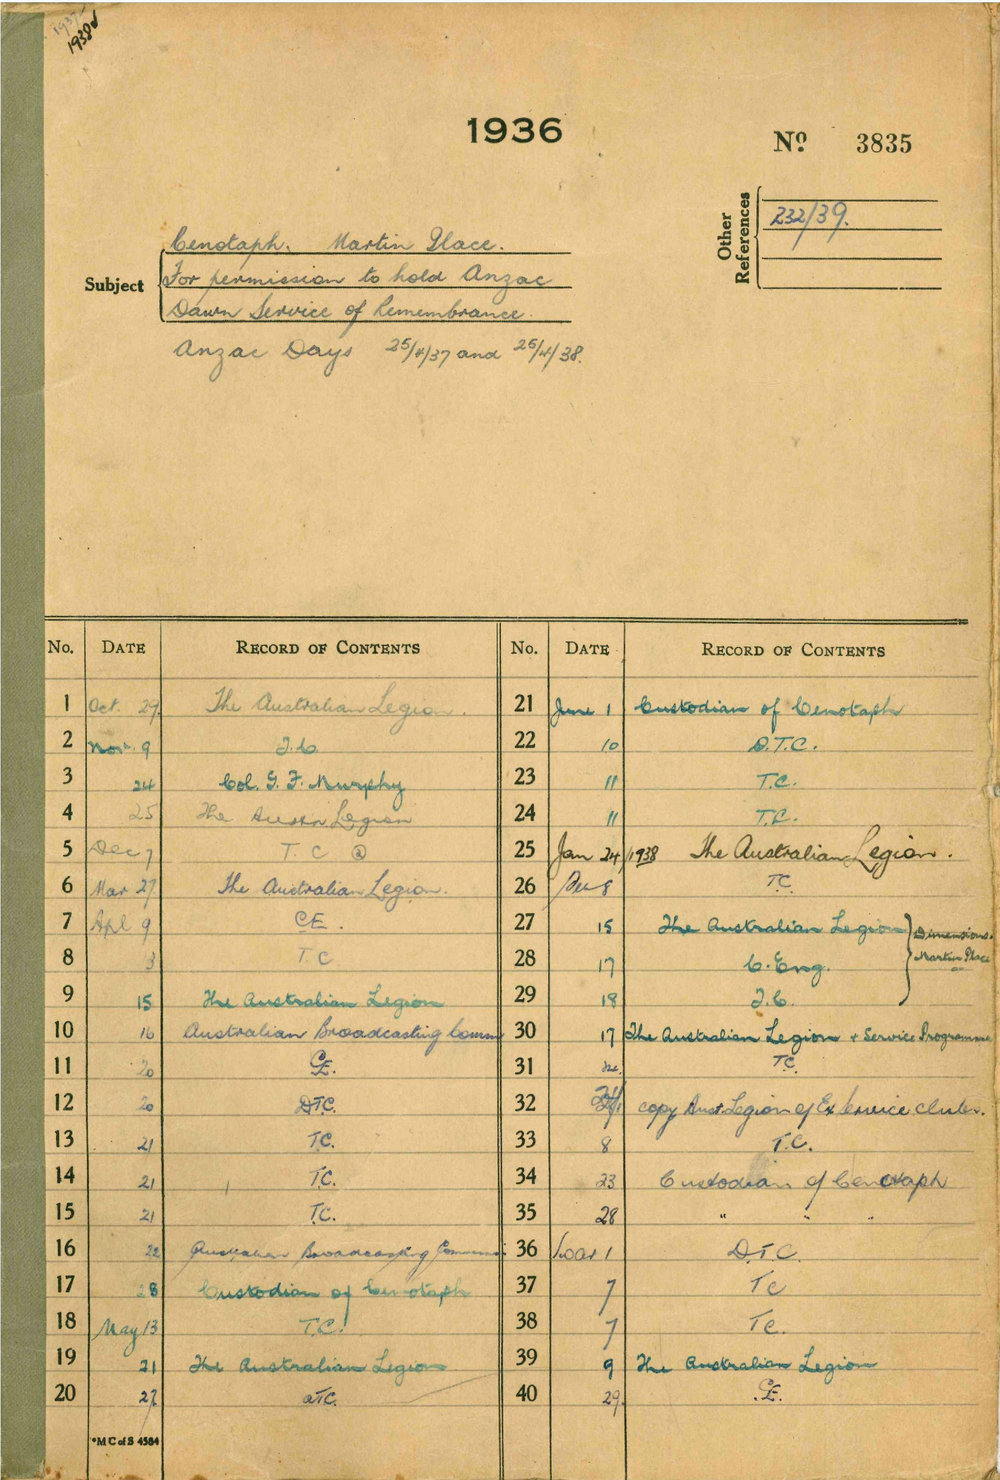 1937
1938
1936
No. 3835
Other References
232/39.
Subject
Cenotaph. Martin Place.
For permission to hold Anzac
Dawn Service of Remembrance.
Anzac Days 25/4/37 and 25/4/38.
No. DATE RECORD OF CONTENTS
1 Oct. 27. The Australian Legion.
2 Nov. 9 T.C.
3 24 Col. G. F. Murphy
4 25 The Austn Legion
5 Dec 7 T. C
6 Mar 27 The Australian Legion.
7 Apl 9 CE.
8 T C
9 15 The Australian Legion
10 16 Australian Broadcasting Comm
11 20 CE.
12 20 DTC.
13 21 T.C.
14 21 T.C.
15 21 T.C.
16 22 Australian Broadcasting Commission
17 28 Custodian of Cenotaph
18 May 13 T.C.
19 21 The Australian Legion
20 27 aTC.
No. DATE RECORD OF CONTENTS
21 June 1 Custodian of Cenotaph
22 10 D.T.C.
23 11 T.C.
24 11 T.C.
25 Jan 24, 1938 The Australian Legion.
26 8 T.C.
27 15 The Australian Legion
28 17 C. Eng.
29 18 T.C.
Dimensions.
Martin Place
30 17 The Australian Legion + Service Programme
31 T.C.
32 copy Aust. Legion of Ex Service Clubs.
33 8 T.C.
34 23 Custodian of Cenotaph
35 28 " " "
36 Mar 1 D.T.C.
37 7 TC
38 7 TC.
39 9 The Australian Legion
40 29. CE.
*M C of S 4584